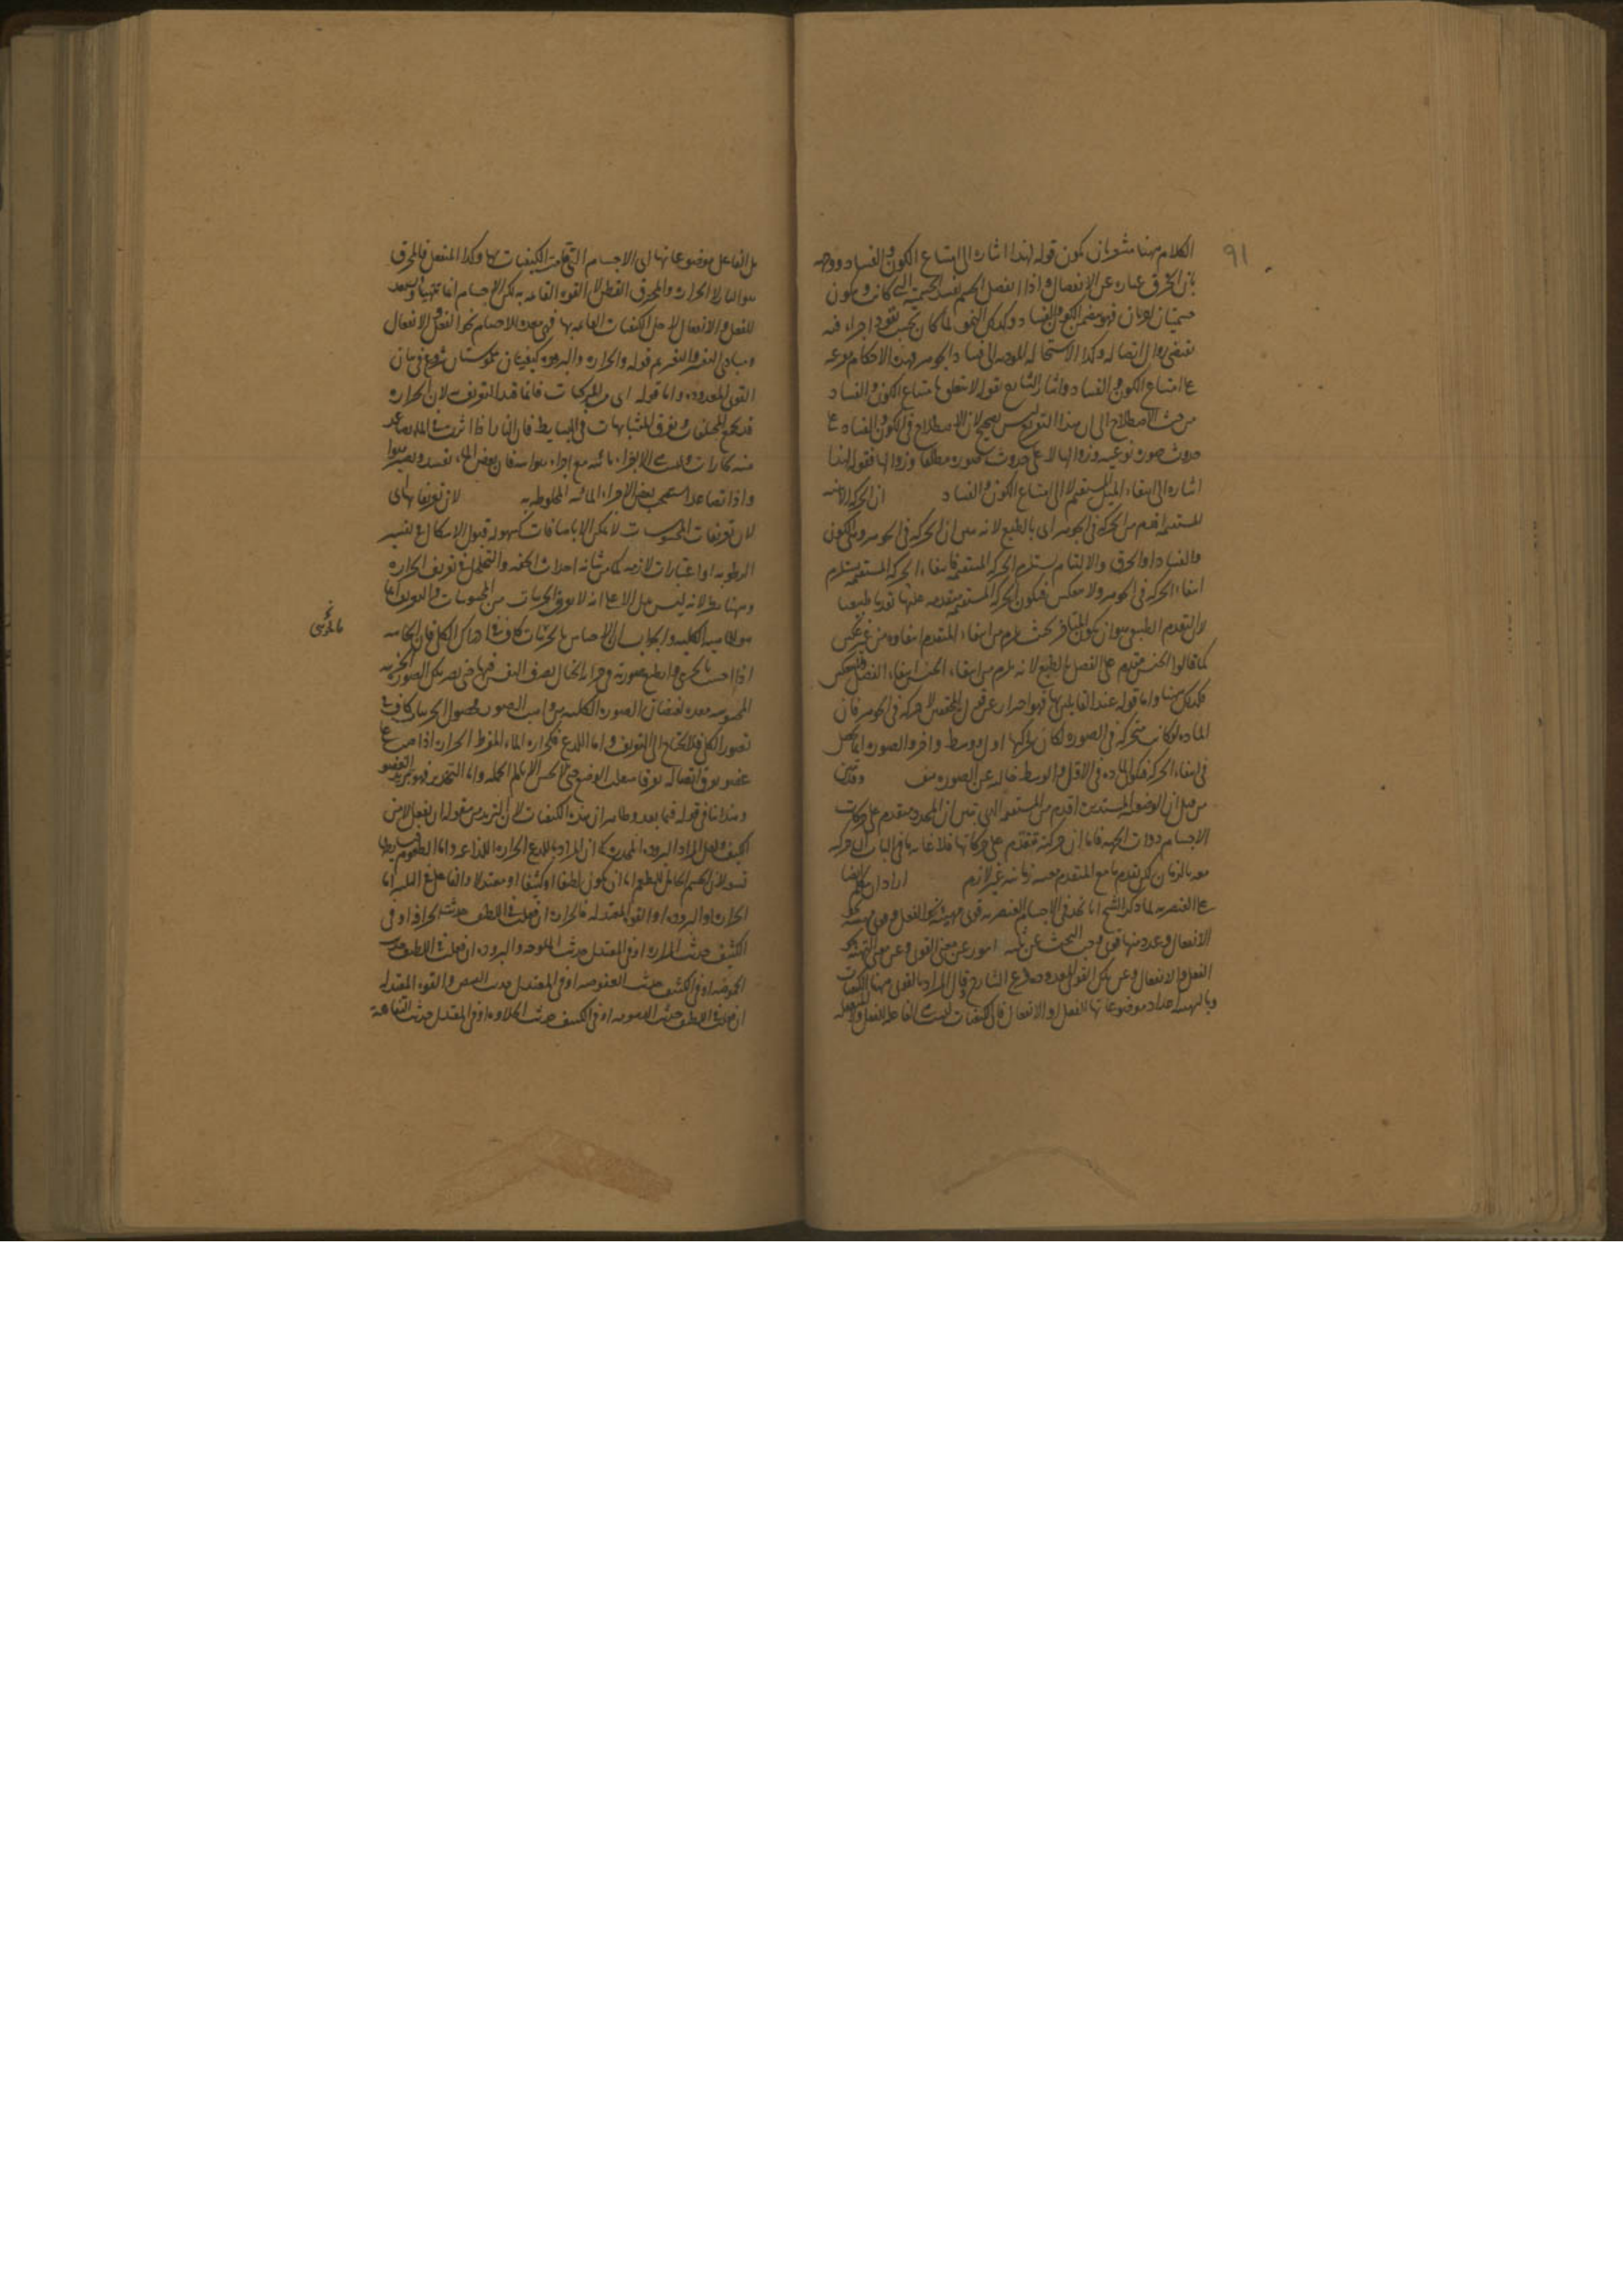 ٩١
الكلام ههنا مشعر بان يكون قوله لهذا اشاره الى امتناع الكون والفساد ووجه
بان الخرق عباره عن الانفصال واذا انفصل الجسم تفسد الجسمية التى كانت ويكون
جسميتان اخريان فهو متضمن الكون والفساد وكذلك النمو لما كان بحسب نفوذ اجزاء فيه
يقتضى زوال اتصاله وكذا الاستحاله فهذه الاحكام متفرعه
على امتناع الكون والفساد واشار الشارح بقوله لا يتعلق بامتناع الكون والفساد
من حيث الاصطلاح الى ان هذا التفريع ليس بصحيح لان الاصطلاح فى الكون والفساد على
حدوث صوره نوعيه وزوالها لا على حدوث صوره مطلقا وزوالها فقوله لهذا
اشاره الى انتفاء الميل المستقيم لا الى امتناع الكون والفساد ان الحركه الاينيه
المستقيمه اقدم من الحركه فى الجوهر اى بالطبع لانه بين ان الحركه فى الجوهر وهى الكون
والفساد او الخرق والالتيام يستلزم الحركه المستقيمه فانتفاء الحركه المستقيمه يستلزم
انتفاء الحركه فى الجوهر ولا ينعكس فيكون الحركه المستقيمه متقدمه عليها تقدما طبيعيا
لان التقدم الطبيعى هو ان يكون المتاخر بحيث يلزم من انتفاء المتقدم انتفاؤه من غير عكس
كما قالوا الجنس متقدم على الفصل بالطبع لانه يلزم من انتفاء الجنس انتفاء الفصل
فكذلك ههنا واما قوله عند القايلين بها فهو احتراز عن قول المحققين لا حركه فى الجوهر فان
الماده لو كانت متحركه فى الصوره لكان لحركتها اول ووسط واخر والصوره انما يحصل
فى انتهاء الحركه فيكون الماده فى الاول والوسط خاليه عن الصوره هف
من قبل ان الوضعيه المستديره اقدم من المستقيمه التى تبين ان المحدد متقدم على حركات
الاجسام ذوات الجهه فاما ان حركته متقدم على حركاتها فلا غايه ما فى الباب ان حركته
معه بالزمان لكن تقدم ما مع المتقدم معيه زمانيه غير لازم اراد ان يتكلم ايضا
على العنصريه لما ذكر الشيخ انا نجد فى الاجسام العنصريه قوى مهيئه نحو الفعل وقوى مهيئه نحو
الانفعال وعدد منها قوى وجب البحث عن ثلثه امور عن معنى القوى وعن معنى التهيئه نحو
الفعل والانفعال وعن تلك القوى المعدوده فشرع الشارح وقال المراد بالقوى ههنا الكيفيات
وبالتهيئه اعداد موضوعاتها للفعل او الانفعال فان الكيفيات ليست الفاعله للفعل والمنفعله
بل الفاعل موضوعاتها اى الاجسام التى قامت الكيفيات بها وكذا المنفعل فالمحرق
هو النار لا الحراره والمحترق القطن لا القوه القائمه به لكن الاجسام انما تتهيا وتستعد
للفعل والانفعال لاجل الكيفيات القائمه بها فهى معده للاجسام نحو الفعل والانفعال
ومبادى التغير والتغير قوله والحراره والبروده كيفيتان ملموستان شروع فى بيان
القوى المعدوده واما قوله اى من المركبات فانما قيد التعريف لان الحراره
قد تجمع المختلفات وتفرق المتشابهات فى البسايط فان النار اذا اثرت فى الماء تصاعد
منه بخارات وليست الا اجزاء مائيه مع اجزاء هوائيه فان بعض الماء تفسد ويصير هواء
واذا تصاعد استصحب بعض الاجزاء المائيه المخلوطه به لان تعريفاتها اى
لان تعريفات المحسوسات لا يمكن الا باضافات كسهوله قبول الاشكال فى تفسير
الرطوبه او اعتبارات لازمه كما من شانه احداث الخفه والتخلخل فى تعريف الحراره
وههنا نظر لانه ليس يدل الا على انه لا يعرف الجزئيات من المحسوسات والتعريف انما
هو للماهيه الكليه والجواب ان الاحساس بالجزئيات كاف فى ادراك الكلى فان الحاسه
ما يدرس
اذا احست بالجزئى وارتسم صورته فى خزانه الخيال تصرف النفس فيها حتى تصير تلك الصوره الجزئيه
المحسوسه معده لفيضان الصوره الكليه من واهب الصور فحصول الجزئيات كاف فى
تصور الكلى فلا يحتاج الى التعريف واما اللذع فكحراره الماء المفرط الحراره اذا صب على
عضو تفرق اتصاله تفرقا متقارب الوضع حتى لا يحس الا بالم الجمله واما التخدير فهو تبريد العضو
وهذا ينافى قوله فيما بعد وظاهر ان هذه الكيفيات لان التبريد من مقوله ان يفعل لا من
الكيف ولعل المراد البروده المخدره كما ان المراد باللذع الحراره اللذاعه واما الطعوم بسايطها
تسعه لان الجسم الحامل للطعم اما ان يكون لطيفا او كثيفا او معتدلا والفاعل فى الثلثه اما
الحراره او البروده او القوه المعتدله فالحراره ان فعلت فى اللطيف حدثت الحرافه او فى
الكثيف حدثت المراره او فى المعتدل حدثت الملوحه والبروده ان فعلت فى اللطيف حدثت
الحموضه او فى الكثيف حدثت العفوصه او فى المعتدل حدث القبض والقوه المعتدله
ان فعلت فى اللطيف حدثت الدسومه او فى الكثيف حدثت الحلاوه او فى المعتدل حدثت التفاهة